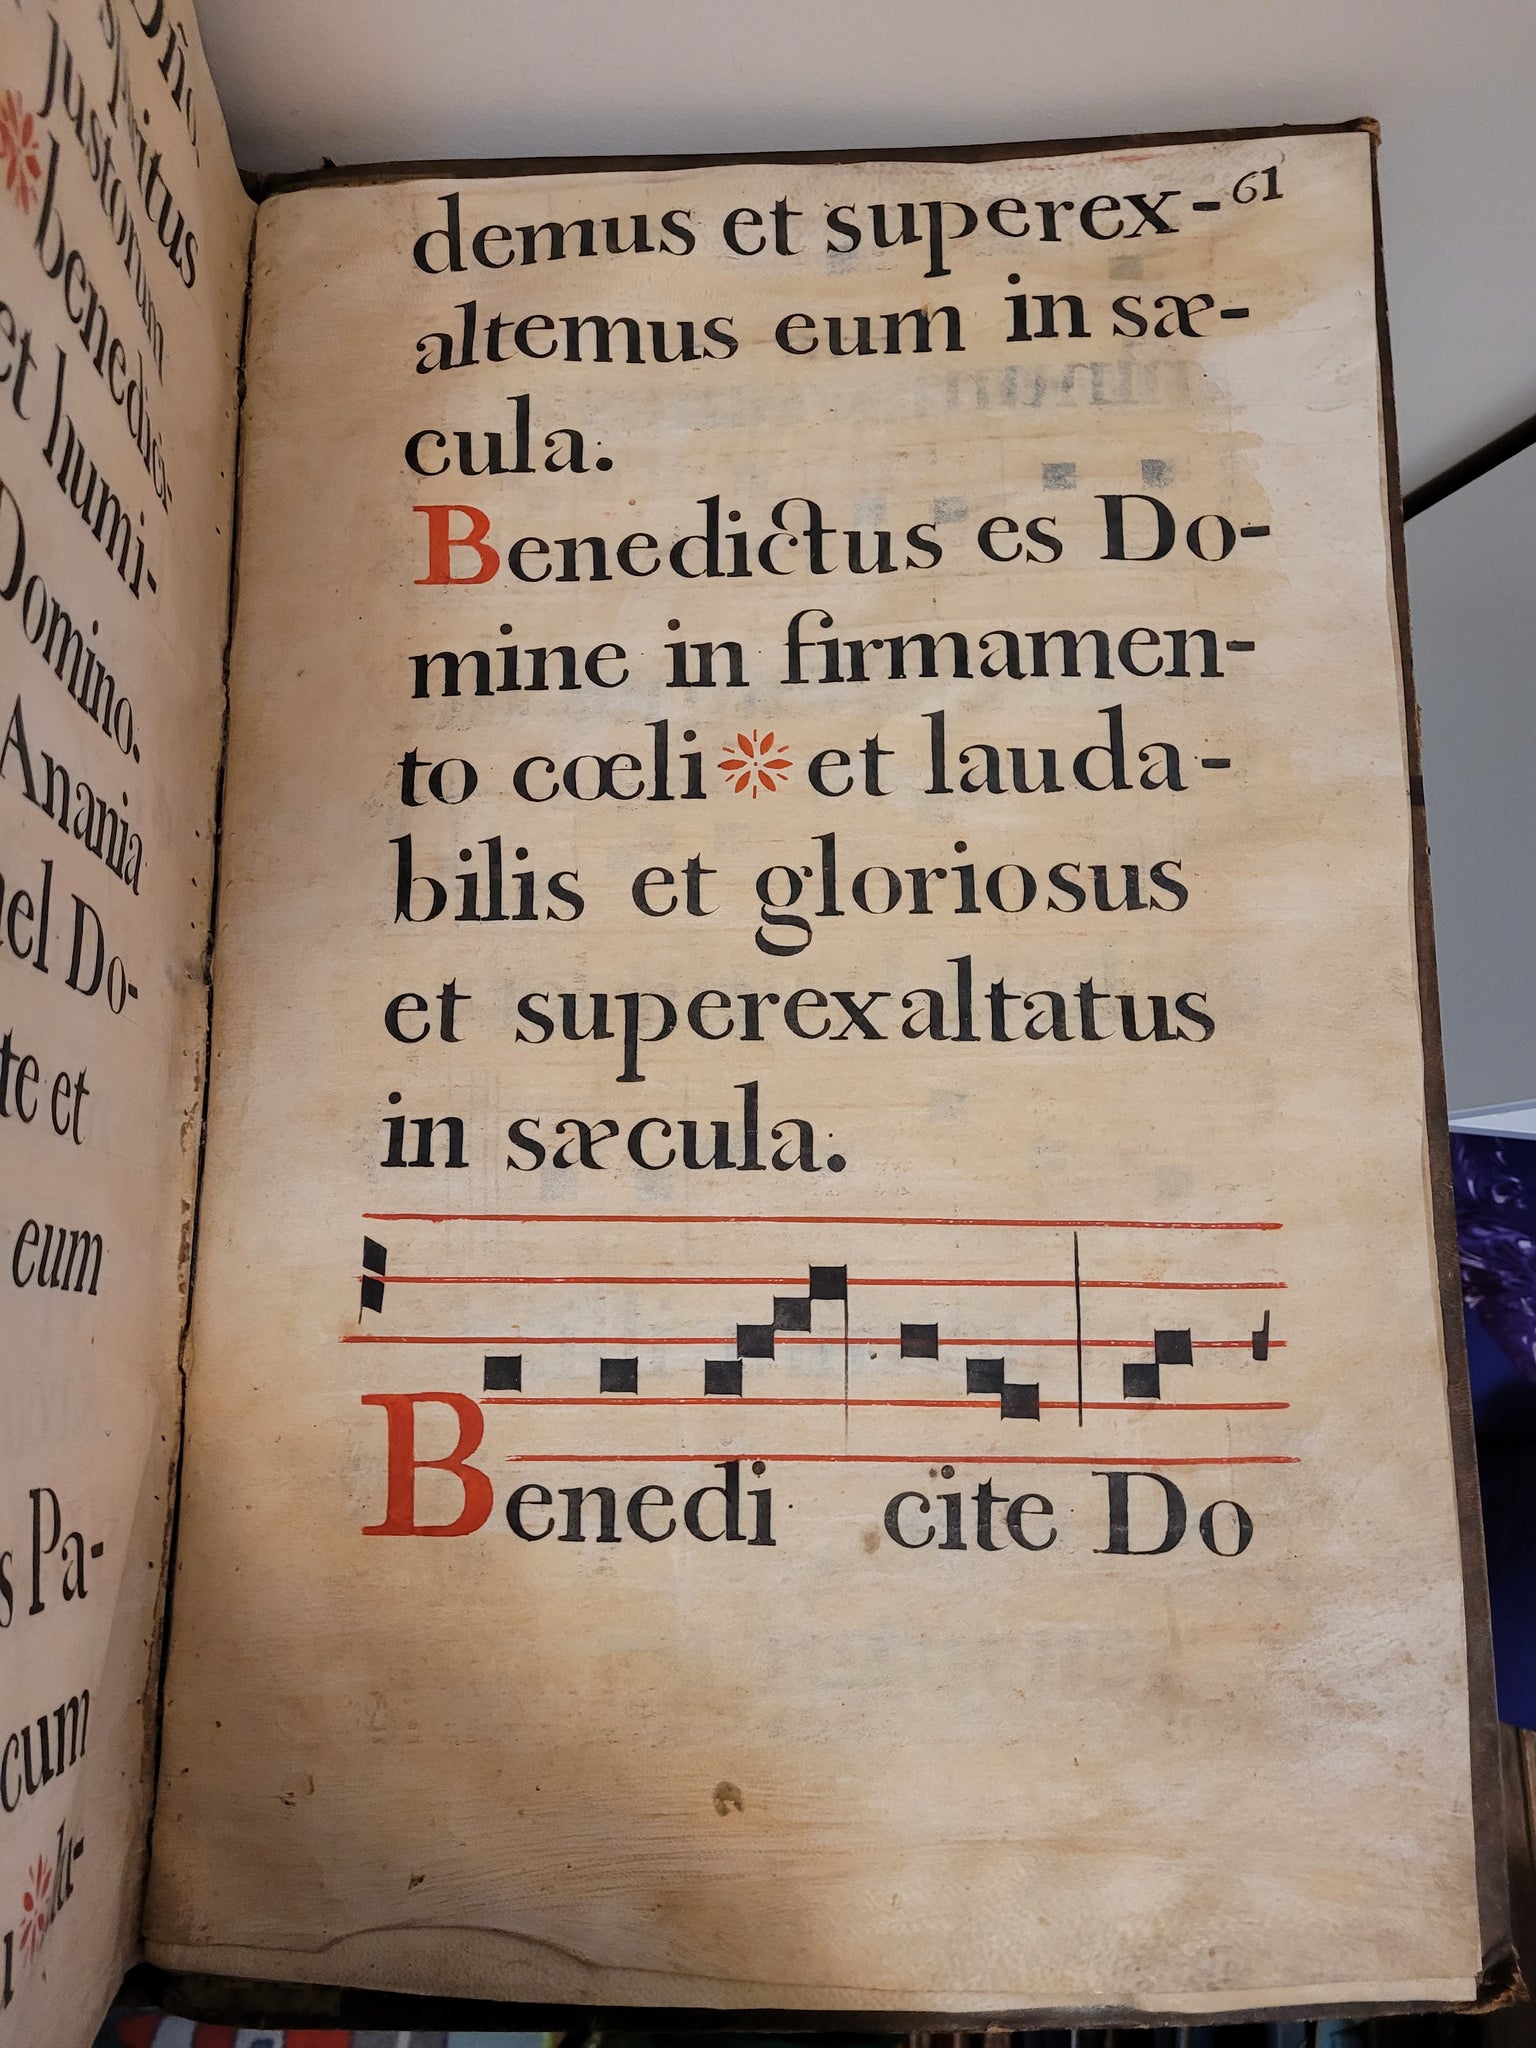 ritus
Justorum
benedici-
et humi-
Domino.
Anania
el Do-
te et
eum
s Pa-
cum
61
demus et superex-
altemus eum in sæ-
cula.
Benedictus es Do-
mine in firmamen-
to cœli et lauda-
bilis et gloriosus
et superexaltatus
in sæcula.
Benedi cite Do